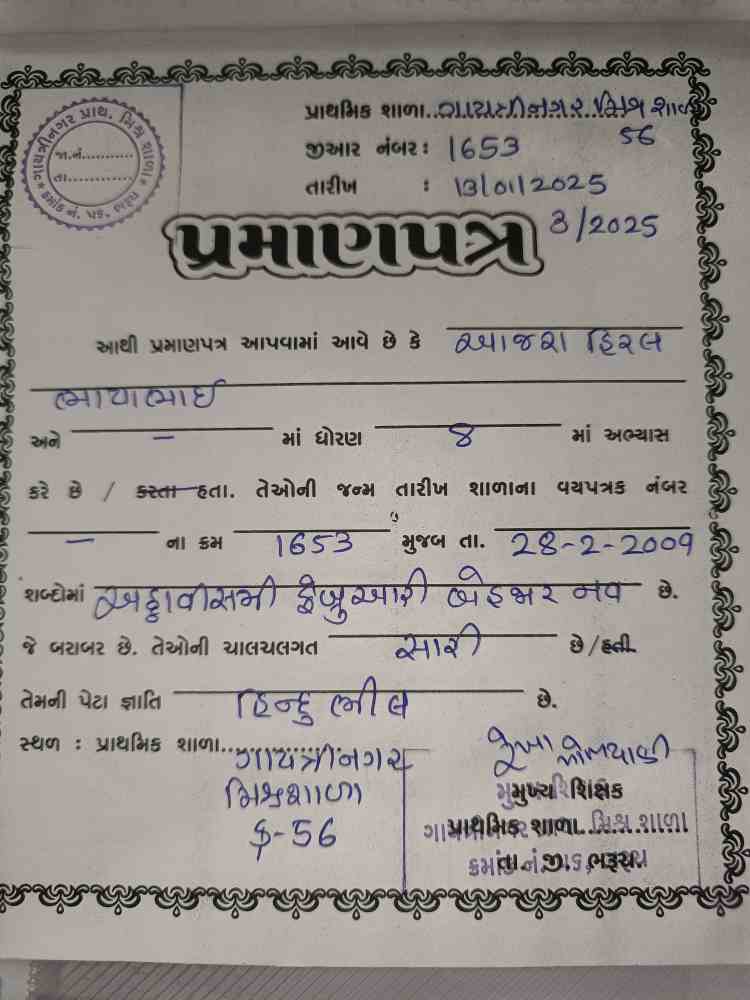 ગાયત્રીનગર પ્રાથ. મિશ્ર શાળા
જા.નં...........
તા...............
ક્રમાંક નં. ૫૬, ભરૂચ
પ્રાથમિક શાળા..ગાયત્રીનગર મિશ્ર શાળા
56
જીઆર નંબર : 1653
તારીખ : 13/01/2025
3/2025
પ્રમાણપત્ર
આથી પ્રમાણપત્ર આપવામાં આવે છે કે આજરા હિરલ
ભાયાભાઈ
અને - માં ધોરણ 8 માં અભ્યાસ
કરે છે / કરતા હતા. તેઓની જન્મ તારીખ શાળાના વયપત્રક નંબર
- ના ક્રમ 1653 મુજબ તા. 28-2-2009
શબ્દોમાં અઠ્ઠાવીસમી ફેબ્રુઆરી બેહજાર નવ છે.
જે બરાબર છે. તેઓની ચાલચલગત સારી છે/હતી.
તેમની પેટા જ્ઞાતિ હિન્દુ ભીલ છે.
સ્થળ : પ્રાથમિક શાળા..ગાયત્રીનગર
મિશ્રશાળા
ક્ર-56
મુખ્ય શિક્ષક
પ્રાથમિક શાળા.............
તા. જી. ભરૂચ.